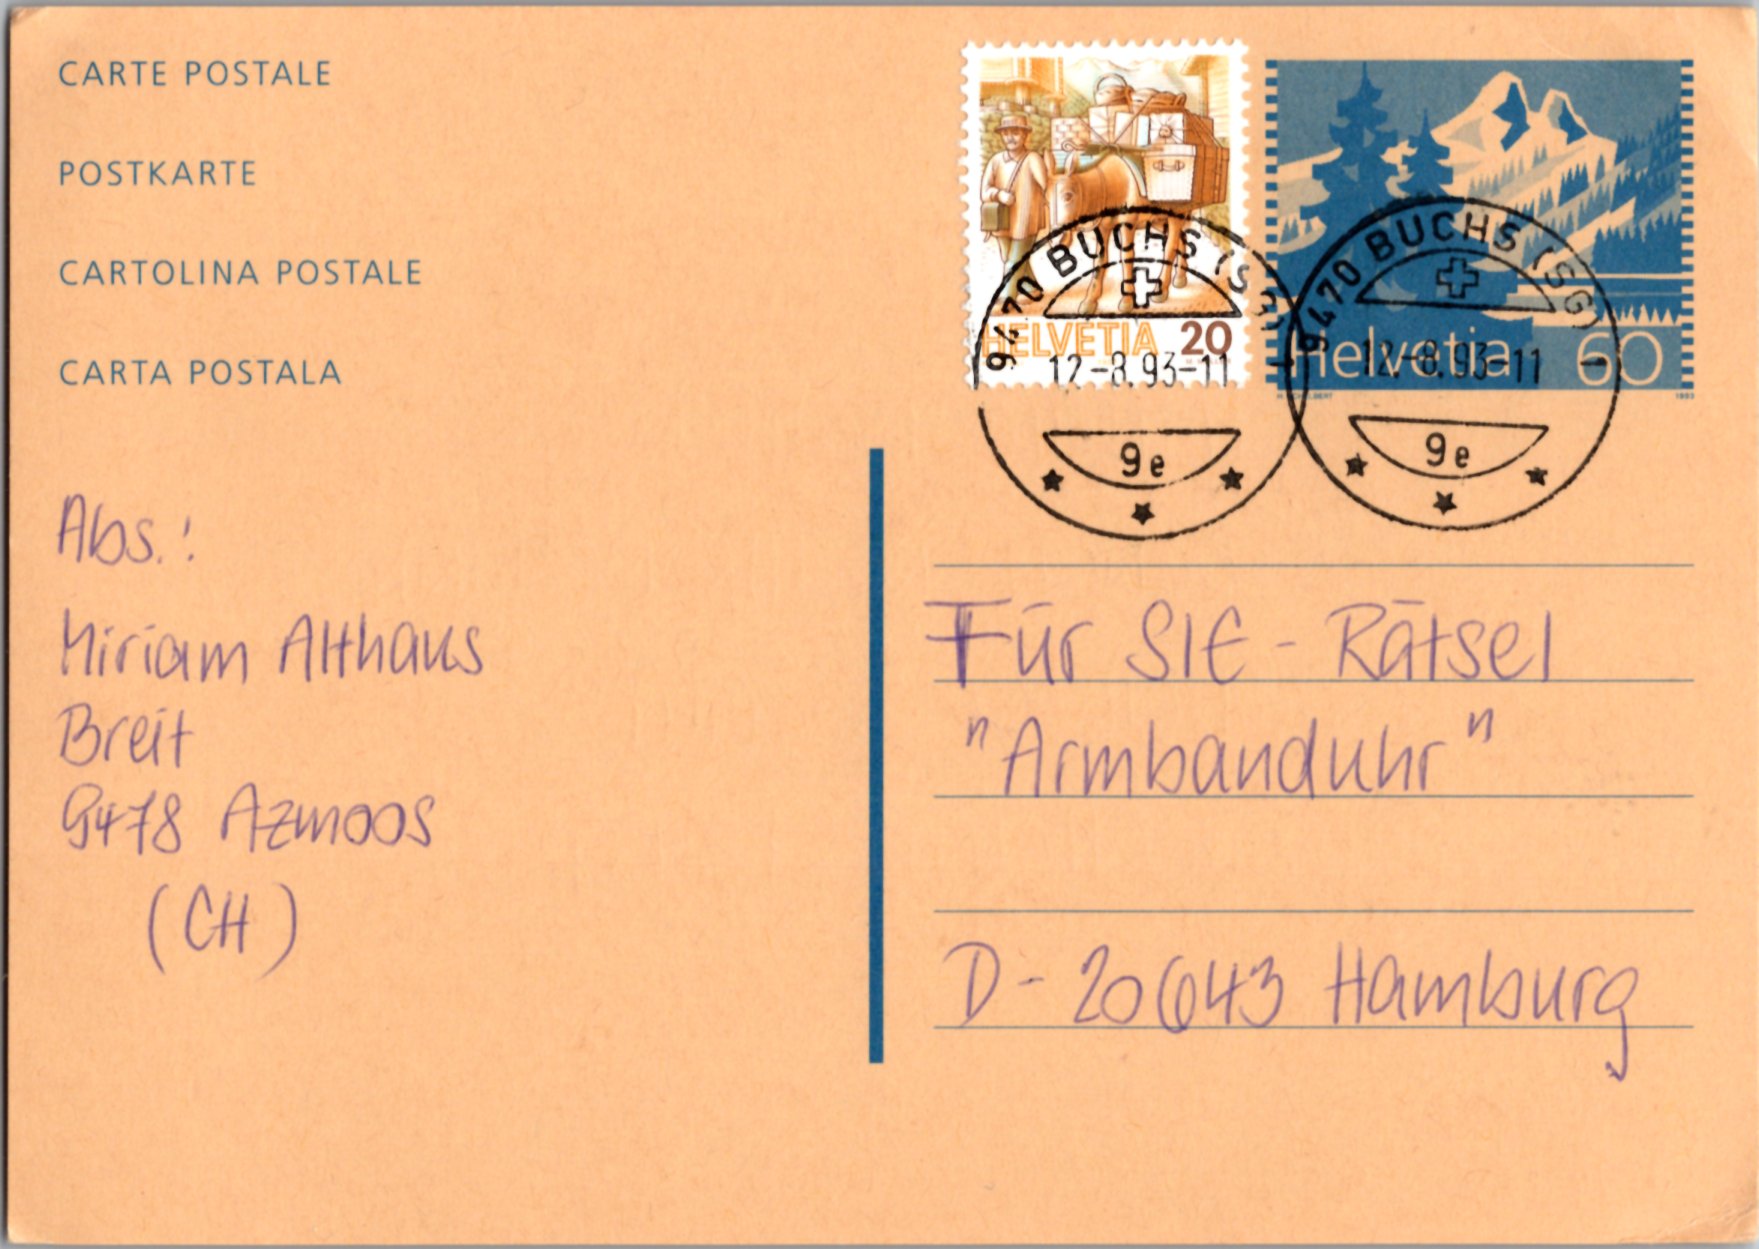 CARTE POSTALE
POSTKARTE
CARTOLINA POSTALE
CARTA POSTALA
HELVETIA 20
9470 BUCHS (SG)
12.-8.93-11
9e
Helvetia 60
1993
9470 BUCHS (SG)
12.-8.93-11
9e
Abs.:
Miriam Althaus
Breit
9478 Azmoos
(CH)
Für SIE - Rätsel
"Armbanduhr"
D - 20643 Hamburg